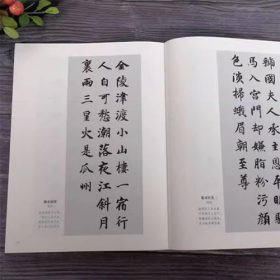 虢國夫人承主恩平明騎
馬入宮門却嫌脂粉污顏
色淡掃蛾眉朝至尊
金陵津渡小山樓一宿行
人自可愁潮落夜江斜月
裏兩三星火是瓜州